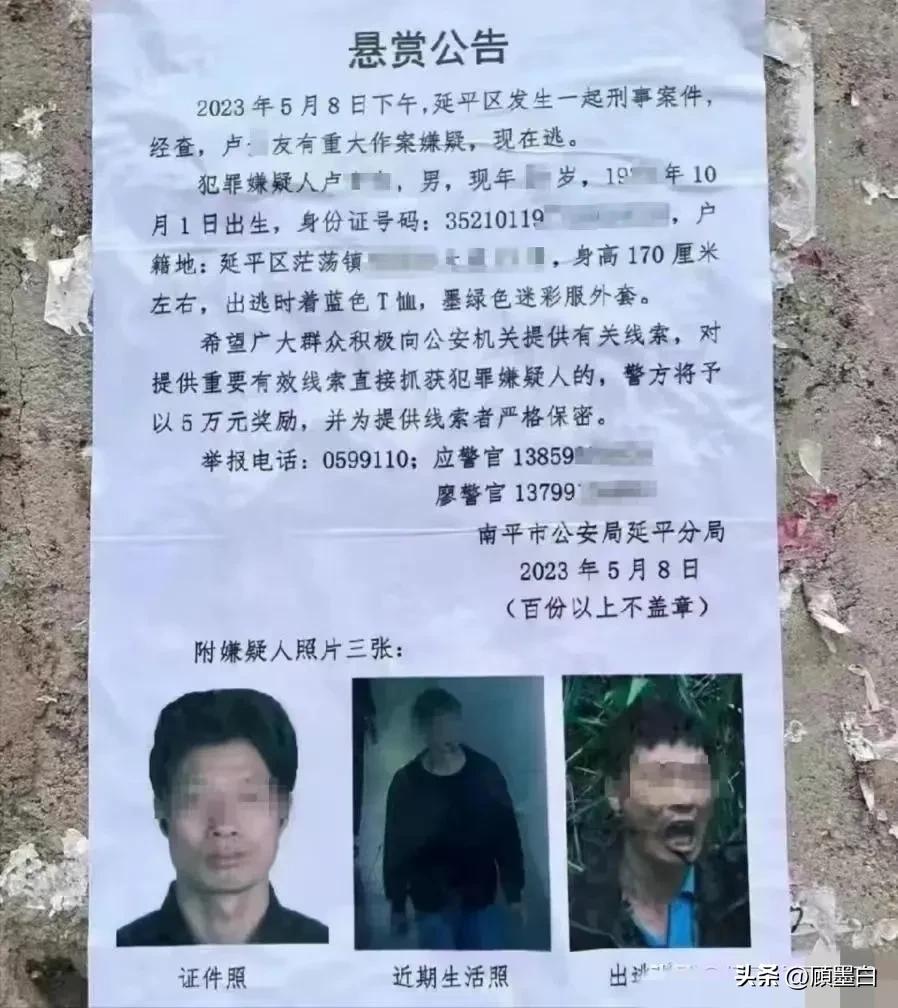 悬赏公告
2023年5月8日下午,延平区发生一起刑事案件,
经查,卢 友有重大作案嫌疑,现在逃。
犯罪嫌疑人卢 ,男,现年 岁,19 年10
月1日出生,身份证号码:35210119 ,户
籍地:延平区茫荡镇 ,身高170厘米
左右,出逃时着蓝色T恤,墨绿色迷彩服外套。
希望广大群众积极向公安机关提供有关线索,对
提供重要有效线索直接抓获犯罪嫌疑人的,警方将予
以5万元奖励,并为提供线索者严格保密。
举报电话:0599110;应警官13859
廖警官13799
南平市公安局延平分局
2023年5月8日
(百份以上不盖章)
附嫌疑人照片三张:
证件照
近期生活照
出逃
头条 @顾墨白